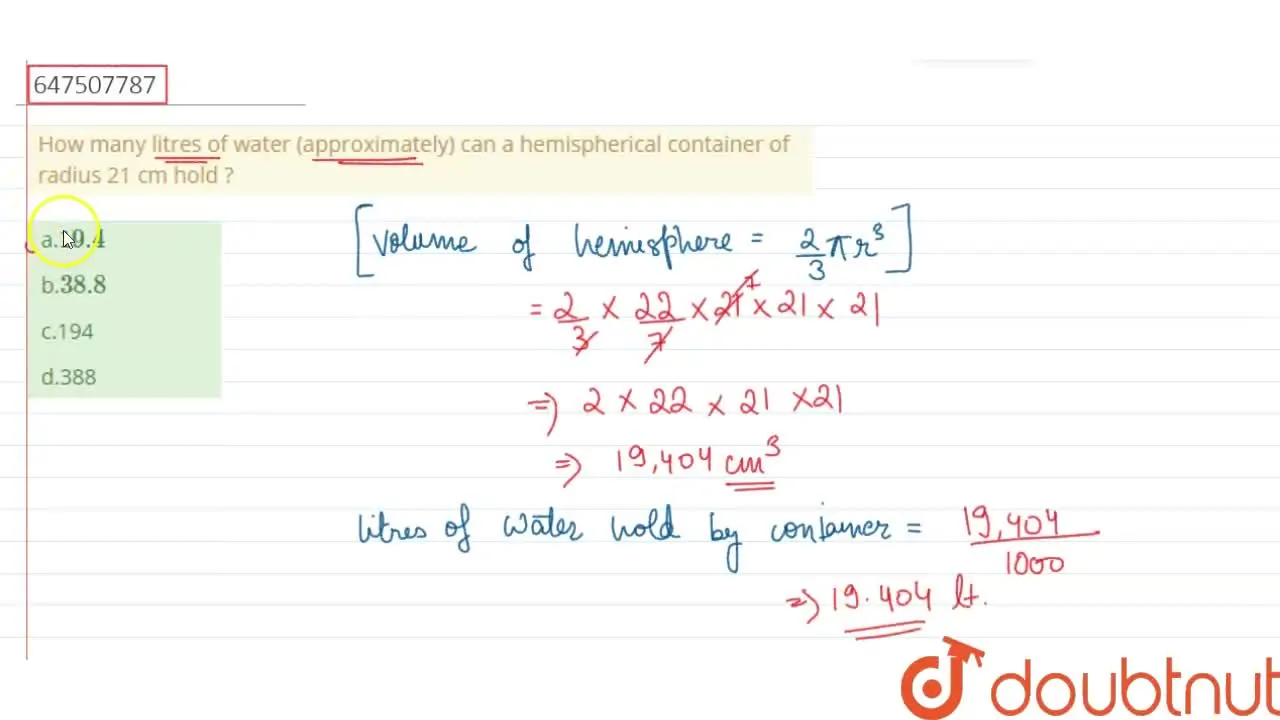 647507787
How many litres of water (approximately) can a hemispherical container of
radius 21 cm hold ?
a.19.4
b.38.8
c.194
d.388
[volume of hemisphere = 2/3 πr³]
= 2/3 × 22/7 × 21 7 × 21 × 21
⇒ 2 × 22 × 21 × 21
⇒ 19,404 cm³
litres of water hold by container = 19,404/1000
⇒ 19.404 lt.
doubtnut